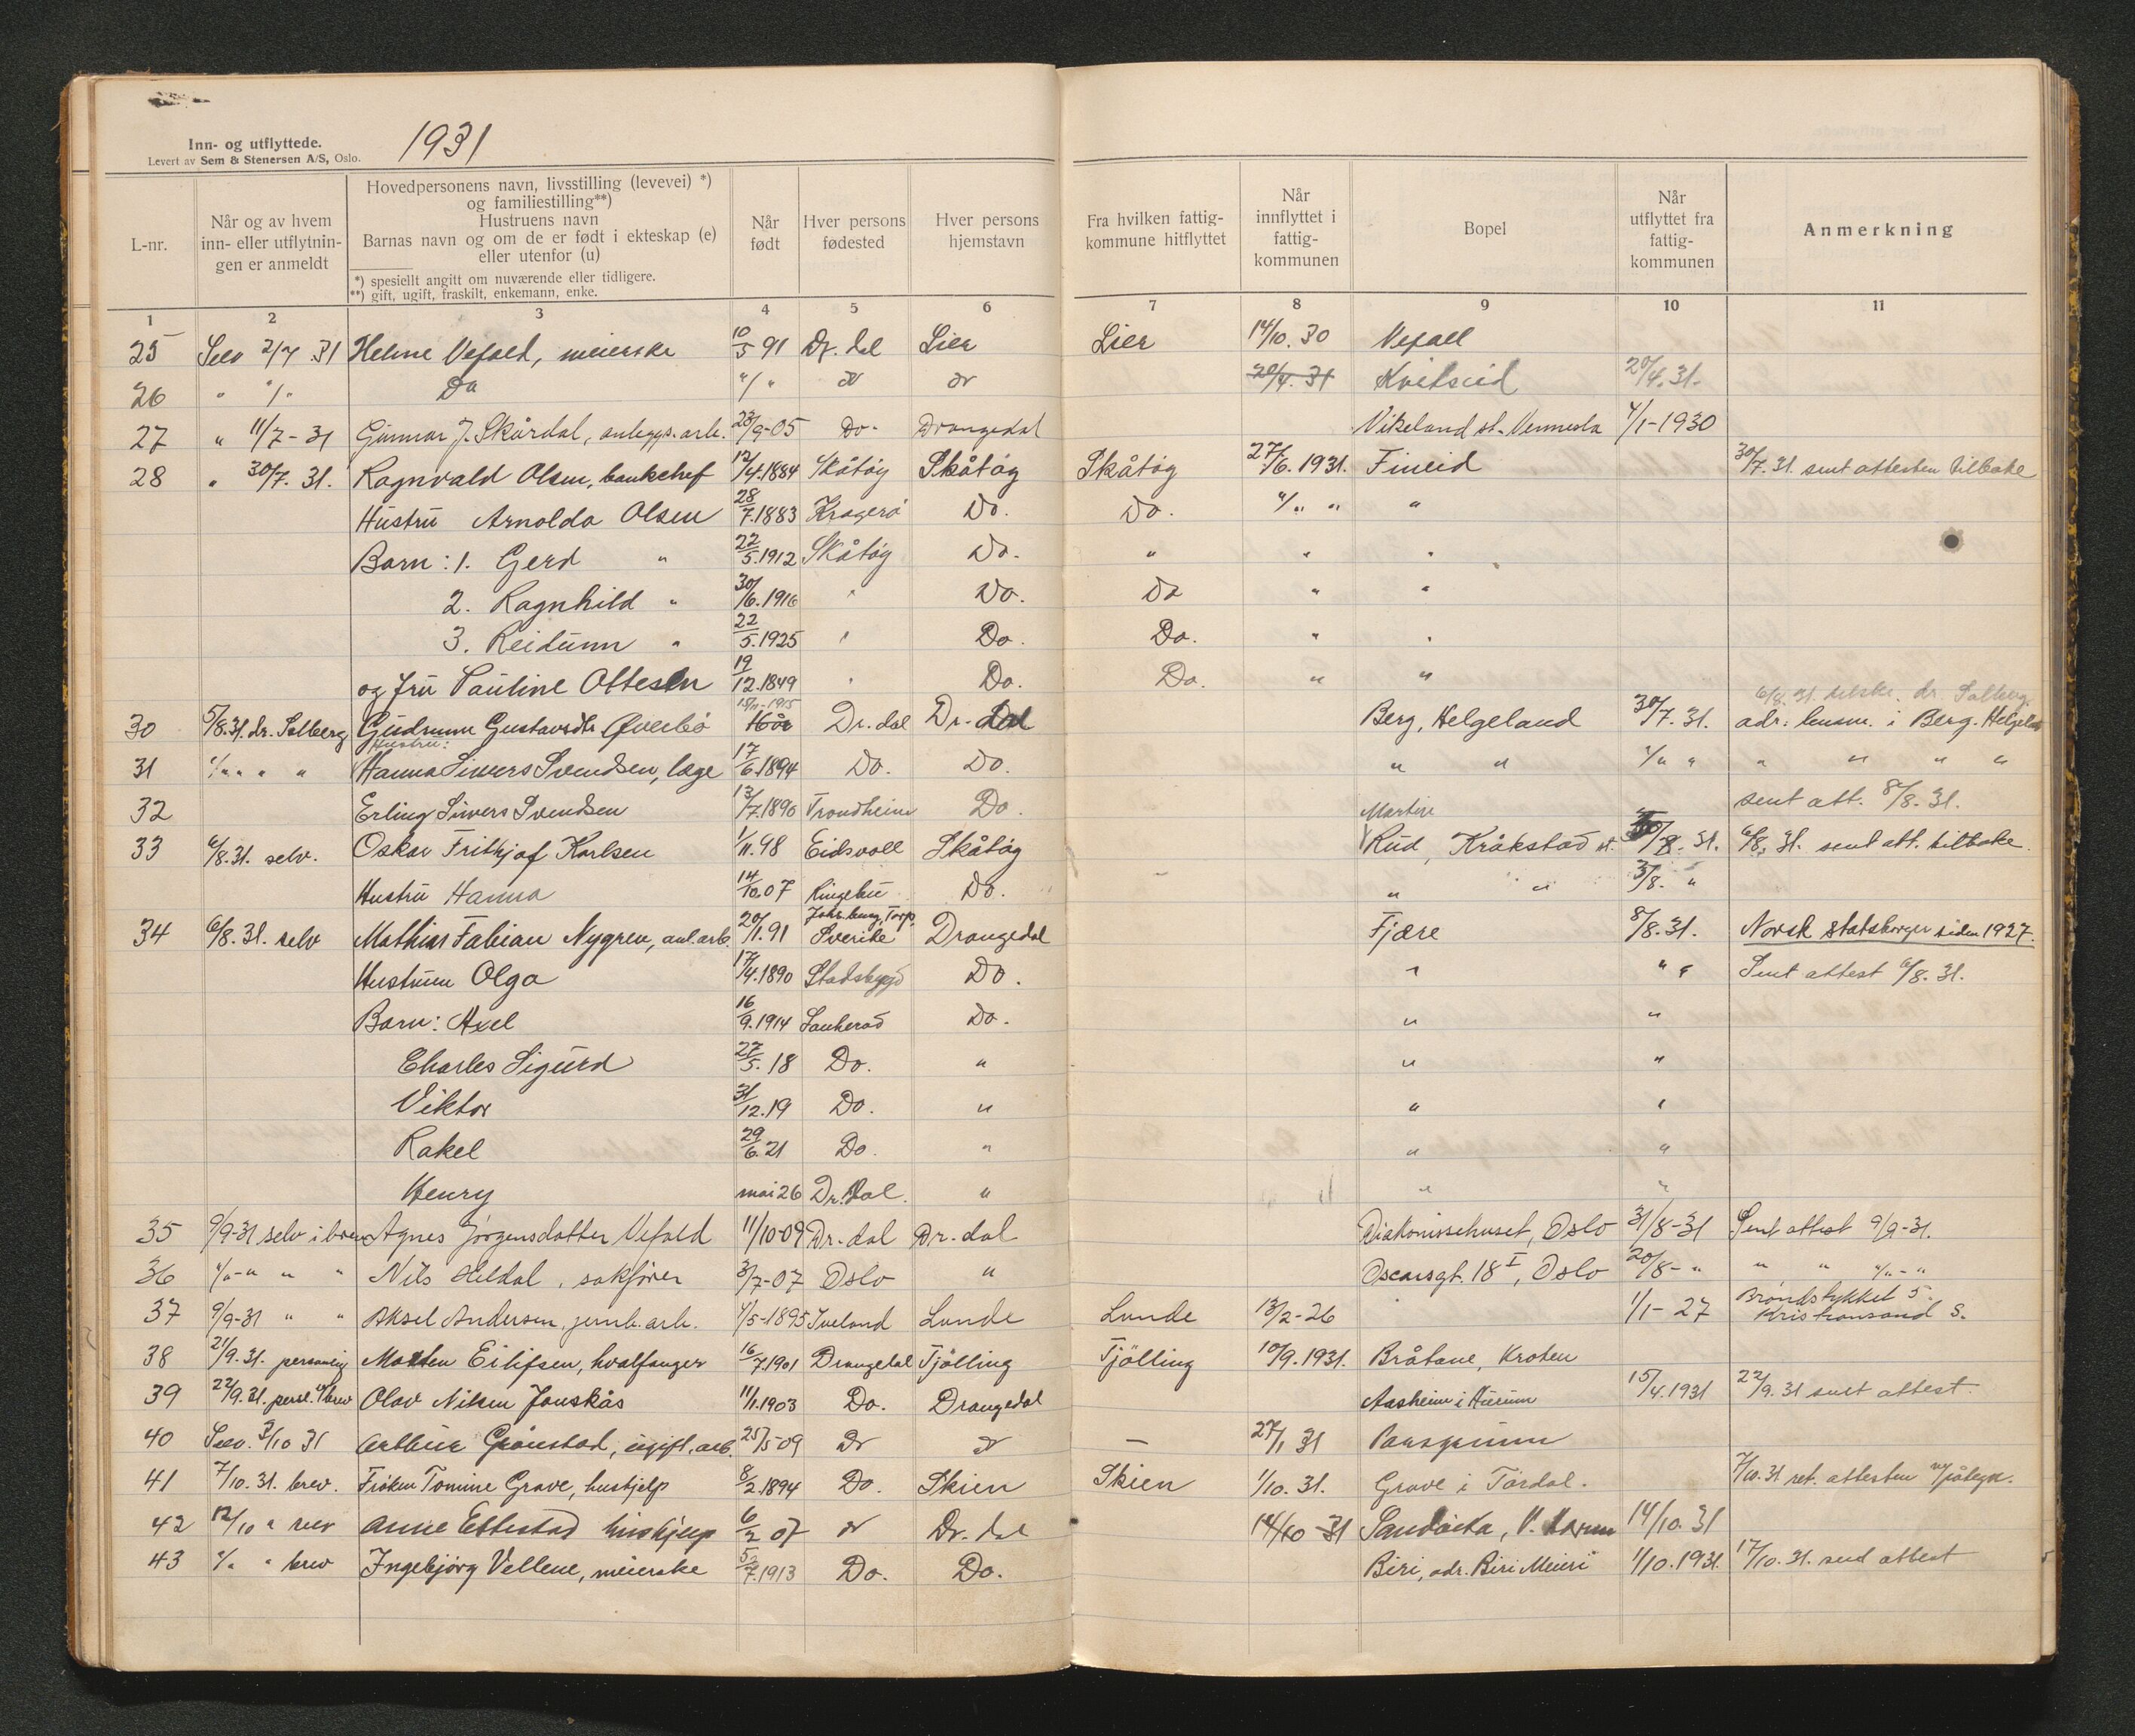 Inn- og utflyttede.
Levert av Sem & Stenersen A/S, Oslo.
1931
L-nr.
Når og av hvem inn- eller utflytnin- gen er anmeldt
Hovedpersonens navn, livsstilling (levevei) *)
og familiestilling**)
Hustruens navn
Barnas navn og om de er født i ekteskap (e)
eller utenfor (u)
*) spesiellt angitt om nuværende eller tidligere.
**) gift, ugift, fraskilt, enkemann, enke.
Når født
Hver persons fødested
Hver persons hjemstavn
Fra hvilken fattig- kommune hitflyttet
Når innflyttet i fattig- kommunen
Bopel
Når utflyttet fra fattig- kommunen
Anmerkning
1 2 3 4 5 6 7 8 9 10 11
25 Selv 2/7 31 Helene Vefald, meierske 10/5 91 Dr. dal Lier Lier 14/10. 30 Vefall
26 " "/" Do "/" do do 20/4. 31 Kvitseid 20/4. 31.
27 " 11/7 - 31 Gunnar J. Skårdal, anleggs.arb. 23/9-05 Do- Drangedal Vikeland st. Vennesla 4/1-1930
28 " 30/7. 31. Ragnvald Olsen, banksjef 12/4.1884 Skåtøy Skåtøy Skåtøy 27/6. 1931. Fineid 30/7. 31 sent attesten tilbake
Hustru Arnolda Olsen 28/7.1883 Kragerø Do. Do. "/" " "
Barn: 1. Gerd " 22/5.1912 Skåtøy Do. " " "
2. Ragnhild " 30/6.1916 " Do. Do " "
3. Reidunn " 22/5.1925 " Do. Do. " "
og fru Pauline Ottesen 19/12.1849 " Do. Do. " "
15/11-1915 6/8. 31. tilske. dr. Solberg
30 5/8.31. dr. Solberg Gudrunn Gustavsdtr Øverbø 16 år Dr. dal Dr. dal Berg, Helgeland 30/7. 31. adr: husm. i Berg. Helgeland
Hustru:
31 "/" " " Hanna Sivers Svendsen, læge 17/6.1894 Do. Do. " " "/" " " " " "
32 Erling Sivers Svendsen 13/7.1890 Trondheim Do. sent att. 8/8. 31.
Martin
33 6/8.31. selv. Oskar Frithjof Karlsen 1/11.98 Eidsvoll Skåtøy Rud, Kråkstad st. /8. 31. 6/8. 31. sent att. tilbake.
Hustru Hanna 14/10.07 Ringebu Do. " " 3/8. "
34 6/8. 31. selv Mathias Fabian Nygren, anl.arb. 20/1.91 Torp, Sverike Drangedal Fjære 8/8. 31. Norsk statsborger siden 1927.
Hustruen Olga 17/4.1890 Stadsbygd Do. " " " Sent attest 6/8. 31.
Barn: Axel 16/9.1914 Sauherad Do. " "
Charles Sigurd 27/5. 18 Do. " " "
Viktor 31/12.19 Do. " " "
Rakel 29/6. 21 Do. " " "
Henry mai 26 Dr. dal. " " "
35 9/9-31 selv i brev Agnes Jørgensdatter Vefald 11/10-09 Dr. dal Dr. dal Diakonissehuset, Oslo 31/8-31 Sent attest 9/9-31.
36 "/"-" " " Nils Heldal, sakfører 3/7-07 Oslo " Oscarsgt. 18 I, Oslo 20/8-" " " "/"-"
37 9/9-31 " " Aksel Andersen, jernb.arb. 4/5-1895 Iveland Lunde Lunde 13/2-26 1/1-27 Brøndstykket 5. Kristiansand S.
38 21/9. 31. personlig Morten Eilifsen, hvalfanger 16/7.1901 Drangedal Tjølling Tjølling 10/9. 1931. Bråtane, Kroken
39 22/9. 31. persl. i brev Olav Nilsen Jonskås 11/1.1903 Do. Drangedal Aasheim i Hurum 15/4.1931 22/9. 31 sent attest.
40 Selv. 3/10 31 Arthur Grønstad, ugift, arb. 25/5 09 Do do — 27/1 31 Porsgrunn
41 7/10. 31. brev. Frøken Tomine Grave, hushjelp 8/2.1894 Do. Skien Skien 1/10. 31. Grave i Tørdal. 7/10. 31 ret. attesten m/påtegn.
42 12/10 " selv Anne Ettestad hushjelp 6/2 07 do Dr. dal 14/10-31 Sandøka, V. 14/10. 31
43 "/" " brev Ingebjørg Vellene, meierske 5/7.1913 Do. Do. Biri, adr. Biri Meieri 1/10.1931. 17/10. 31. send attest